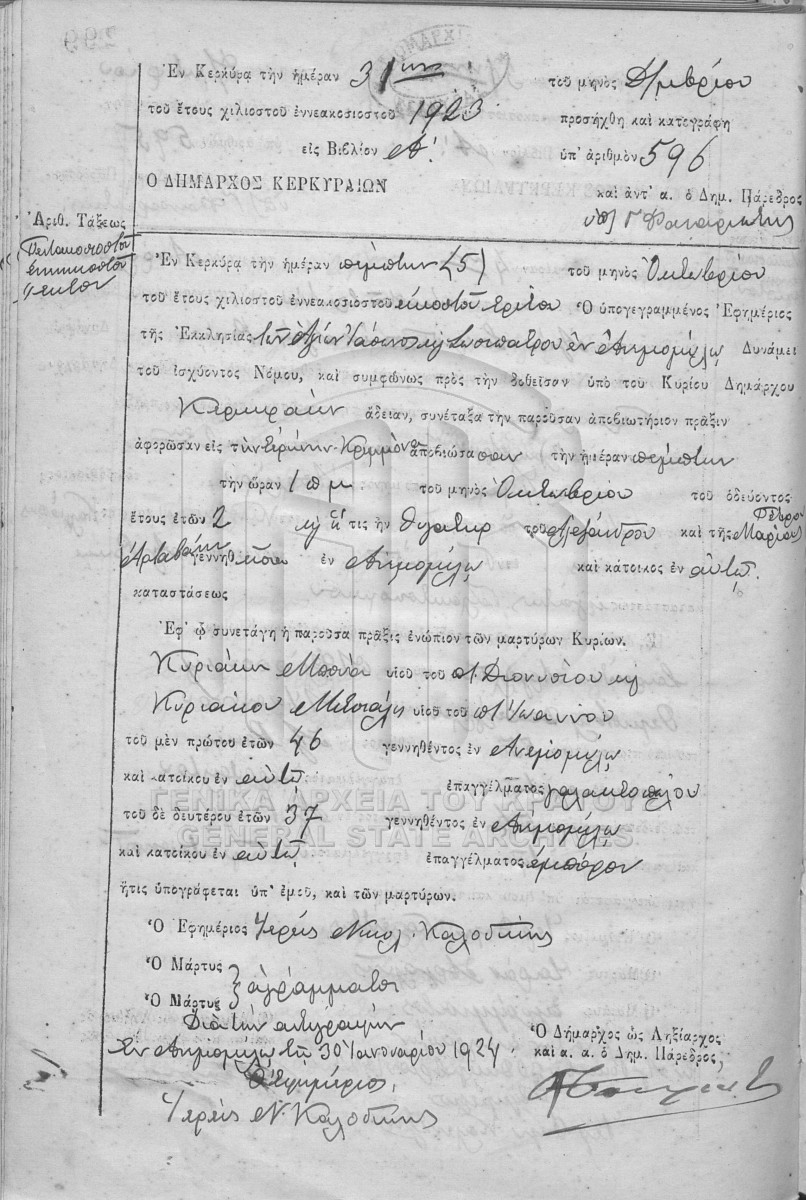 Ἐν Κερκύρᾳ τὴν ἡμέραν 31ην τοῦ μηνὸς Δ/μβρίου
τοῦ ἔτους χιλιοστοῦ ἐννεακοσιοστοῦ 1923 προσήχθη καὶ κατεγράφη
εἰς Βιβλίον Α! ὑπ' ἀριθμὸν 596
Ο ΔΗΜΑΡΧΟΣ ΚΕΡΚΥΡΑΙΩΝ
καὶ ἀντ' α. ὁ Δημ. Πάρεδρος
Ἀριθ. Τάξεως
Πεντακοσιοστὸν
ἐννενηκοστὸν
ἕκτον
Ἐν Κερκύρᾳ τὴν ἡμέραν πέμπτην (5) τοῦ μηνὸς Ὀκτωβρίου
τοῦ ἔτους χιλιοστοῦ ἐννεακοσιοστοῦ εἰκοστοῦ τρίτου Ὁ ὑπογεγραμμένος Ἐφημέριος
τῆς Ἐκκλησίας τῶν Ἁγίων Ἰάσωνος κ Σωσιπάτρου ἐν Ἀνεμομύλῳ Δυνάμει
τοῦ ἰσχύοντος Νόμου, καὶ συμφώνως πρὸς τὴν δοθεῖσαν ὑπὸ τοῦ Κυρίου Δημάρχου
Κερκυραίων ἄδειαν, συνέταξα τὴν παροῦσαν ἀποβιωτήριον πρᾶξιν
ἀφορῶσαν εἰς τὴν Εἰρήνην ἀποβιώσασαν τὴν ἡμέραν πέμπτην
τὴν ὥραν 1 π μ. τοῦ μηνὸς Ὀκτωβρίου τοῦ ὁδεύοντος
ἔτους ἐτῶν 2 τις ἦν θυγάτηρ τοῦ Ἀλεξάνδρου καὶ τῆς Μαρίας
γεννηθεῖσα ἐν Ἀνεμομύλῳ καὶ κάτοικος ἐν αὐτῷ.
καταστάσεως
Ἐφ' ᾧ συνετάγη ἡ παροῦσα πρᾶξις ἐνώπιον τῶν μαρτύρων Κυρίων.
υἱοῦ τοῦ π. Διονυσίου κ
Κυριάκου υἱοῦ τοῦ π. Ἰωάννου
τοῦ μὲν πρώτου ἐτῶν 46 γεννηθέντος ἐν Ἀνεμομύλῳ
καὶ κατοίκου ἐν αὐτῷ ἐπαγγέλματος γαλακτοπώλου
τοῦ δὲ δευτέρου ἐτῶν 37 γεννηθέντος ἐν Ἀνεμομύλῳ
καὶ κατοίκου ἐν αὐτῷ ἐπαγγέλματος ἐμπόρου
ἥτις ὑπογράφεται ὑπ' ἐμοῦ, καὶ τῶν μαρτύρων.
Ὁ Ἐφημέριος Ἱερεὺς Νικολ. Καλοδίκης
Ὁ Μάρτυς
ἀγράμματοι
Ὁ Μάρτυς
Διὰ τὴν ἀντιγραφὴν
Ἐν Ἀνεμομύλῳ τῇ 30 Ἰανουαρίου 1924
Ὁ Ἐφημέριος,
Ἱερεὺς Ν. Καλοδίκης
Ὁ Δήμαρχος ὡς Ληξίαρχος
καὶ α. α. ὁ Δημ. Πάρεδρος
ΓΕΝΙΚΑ ΑΡΧΕΙΑ ΤΟΥ ΚΡΑΤΟΥΣ
GENERAL STATE ARCHIVES